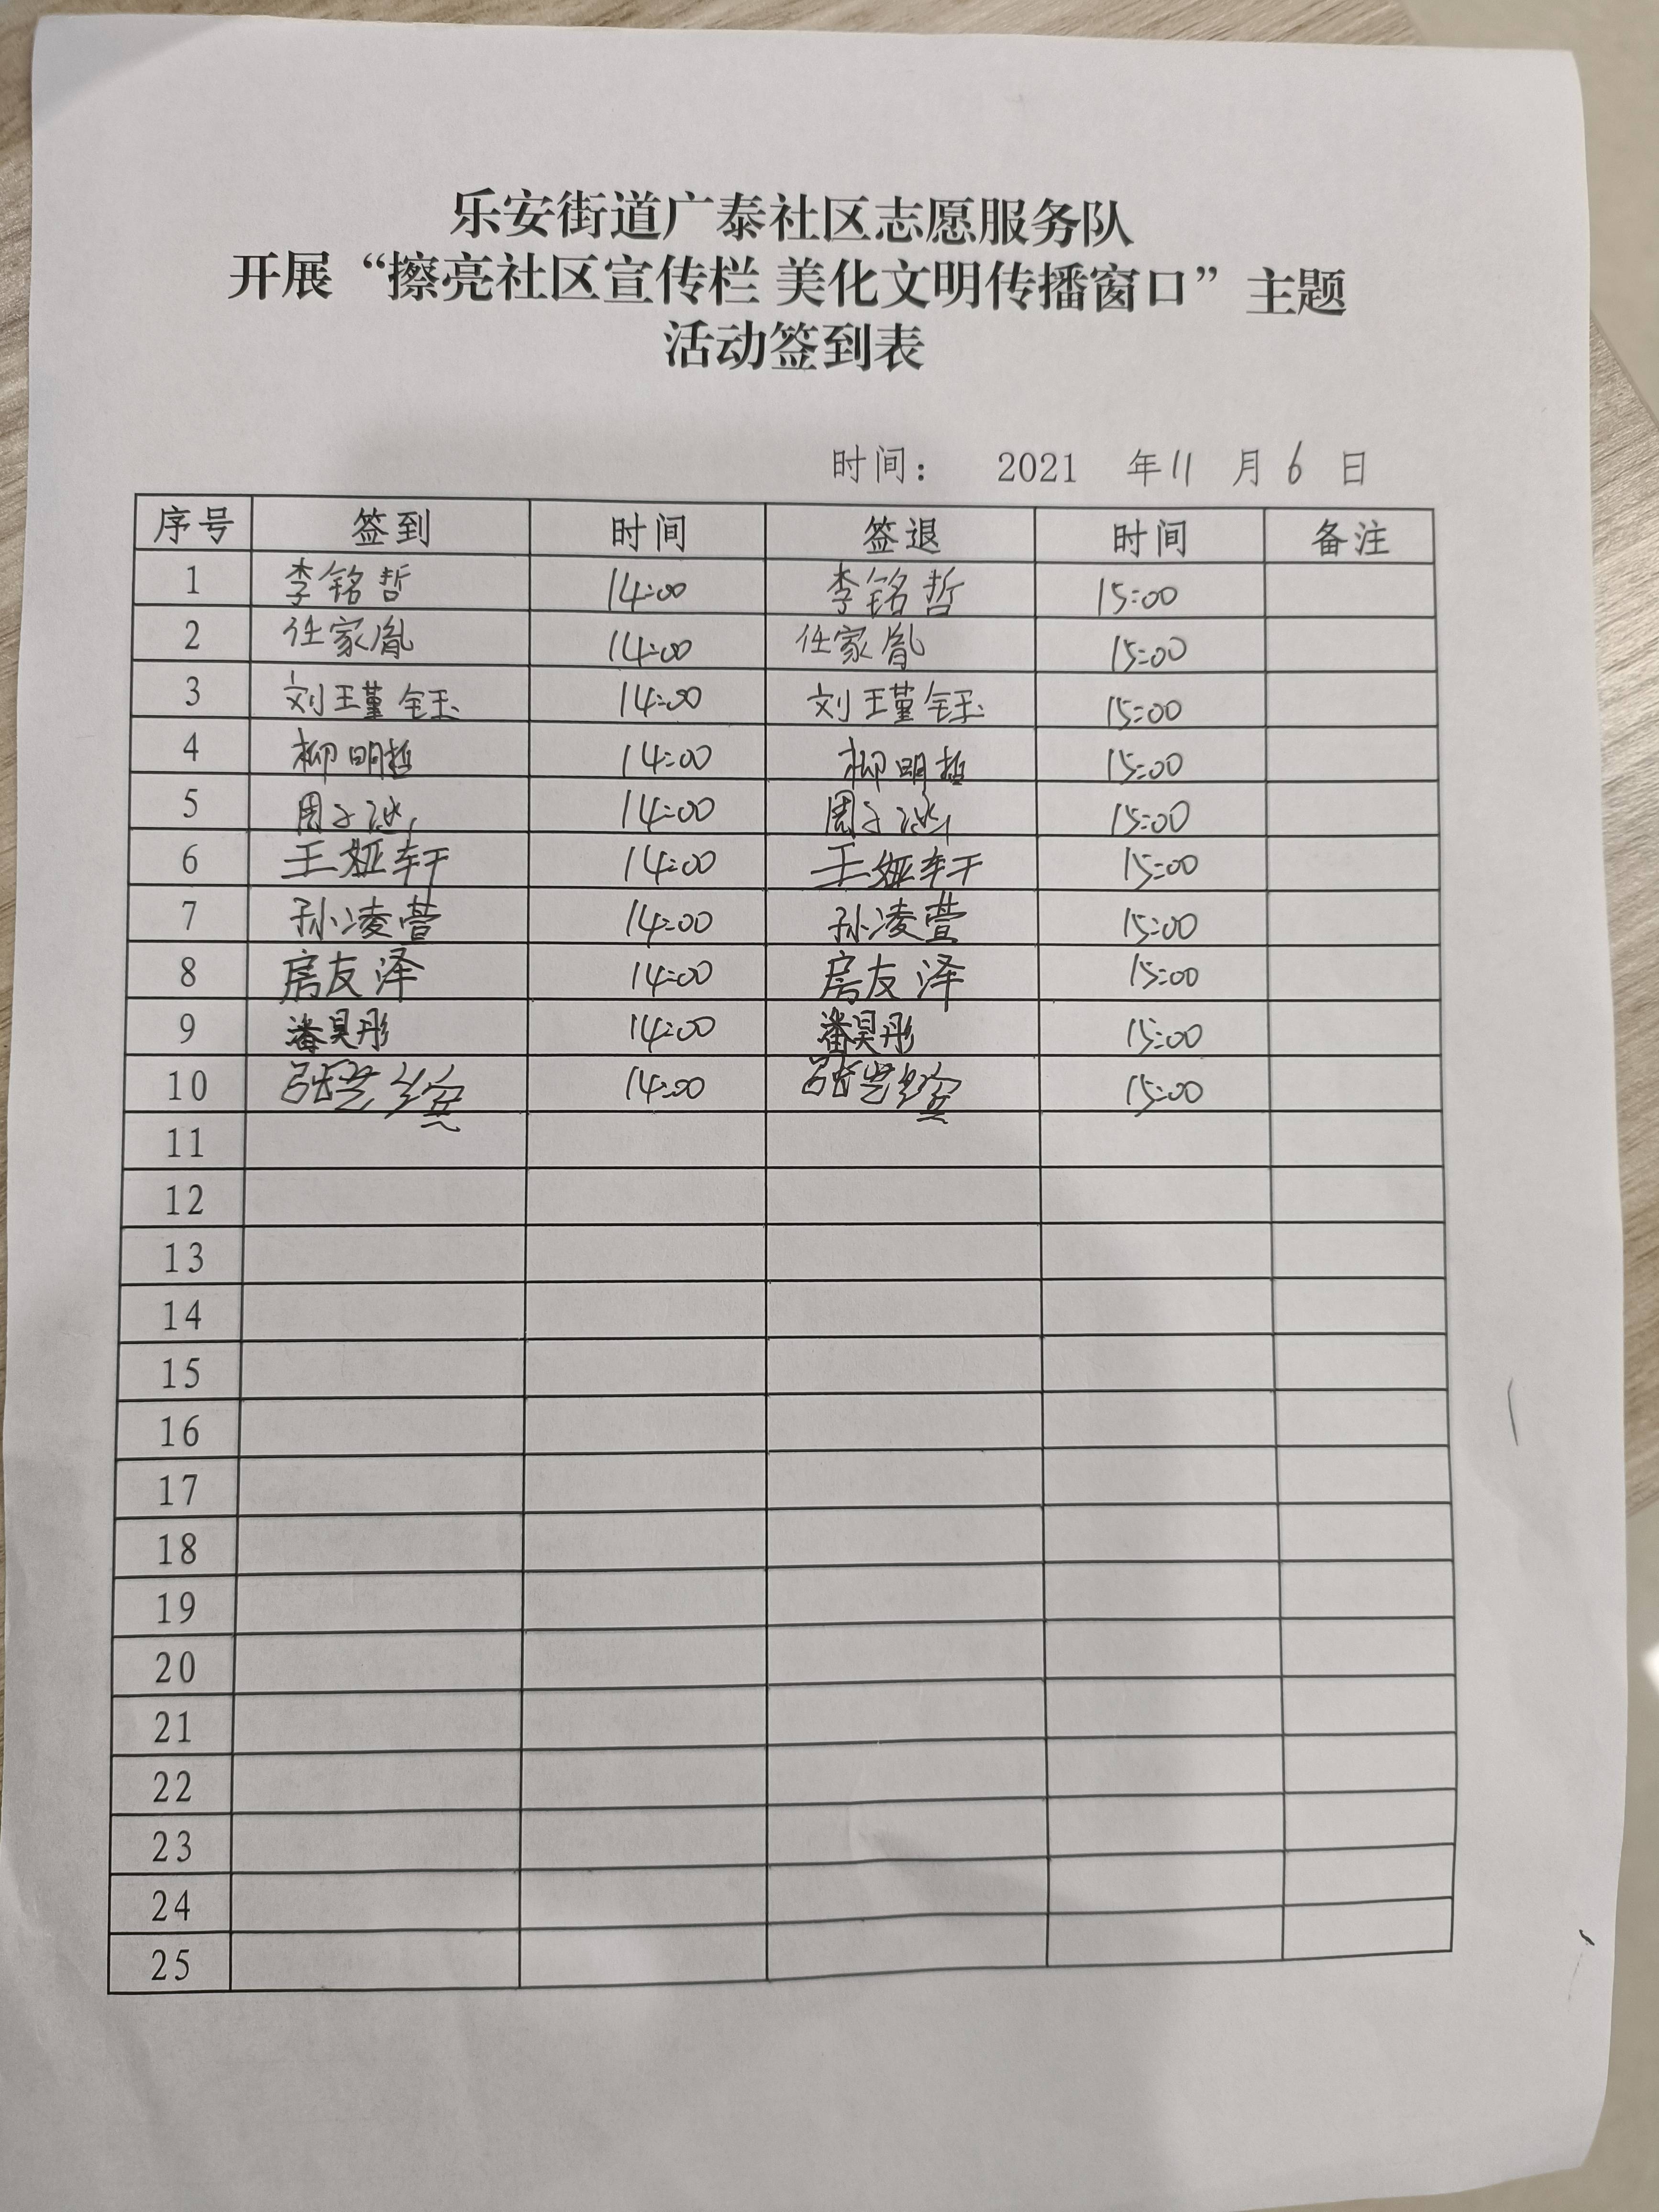 乐安街道广泰社区志愿服务队
开展“擦亮社区宣传栏 美化文明传播窗口”主题
活动签到表
时间： 2021 年 11 月 6 日
序号 签到 时间 签退 时间 备注
1 李铭哲 14:00 李铭哲 15:00
2 任家胤 14:00 任家胤 15:00
3 刘王堇钰 14:00 刘王堇钰 15:00
4 柳明哲 14:00 柳明哲 15:00
5 周子 14:00 周子 15:00
6 王娅轩 14:00 王娅轩 15:00
7 孙凌萱 14:00 孙凌萱 15:00
8 房友泽 14:00 房友泽 15:00
9 潘昊彤 14:00 潘昊彤 15:00
10 张 14:00 张 15:00
11
12
13
14
15
16
17
18
19
20
21
22
23
24
25